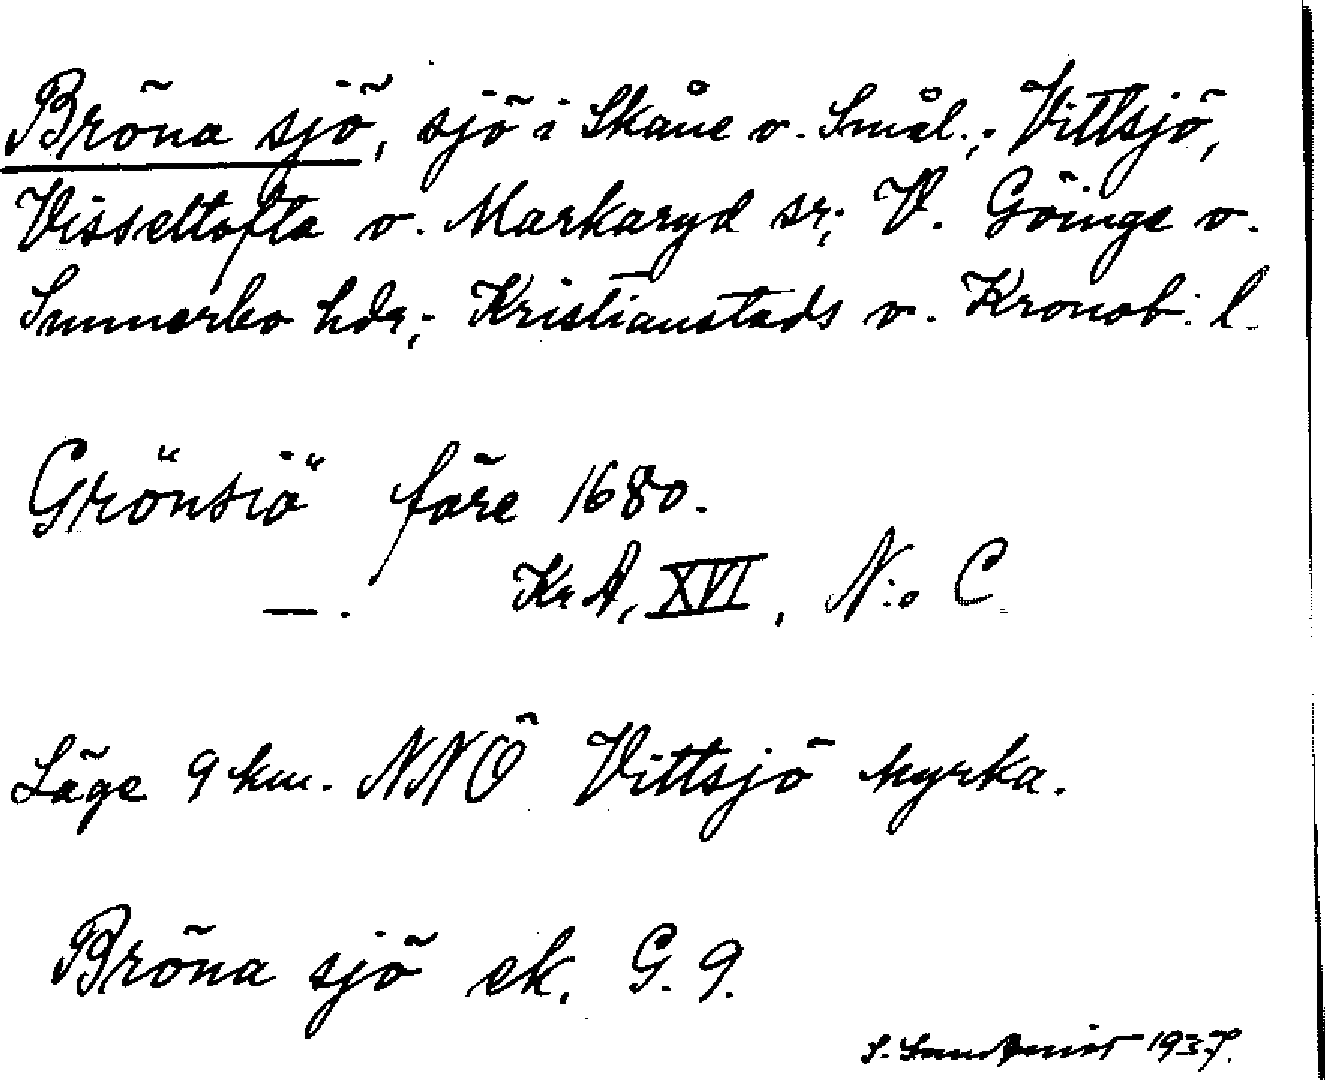 Bröna sjö, sjö i Skåne o. Smål.; Vittsjö,
Visseltofta o. Markaryd sr; V. Göinge o.
Sunnerbo hdr; Kristianstads o. Kronob. l.
Grönsiö före 1680.
—. KrA, XVI, N:o C
Läge 9 km. NNÖ Vittsjö kyrka.
Bröna sjö ek. G. 9.
S. 1937.